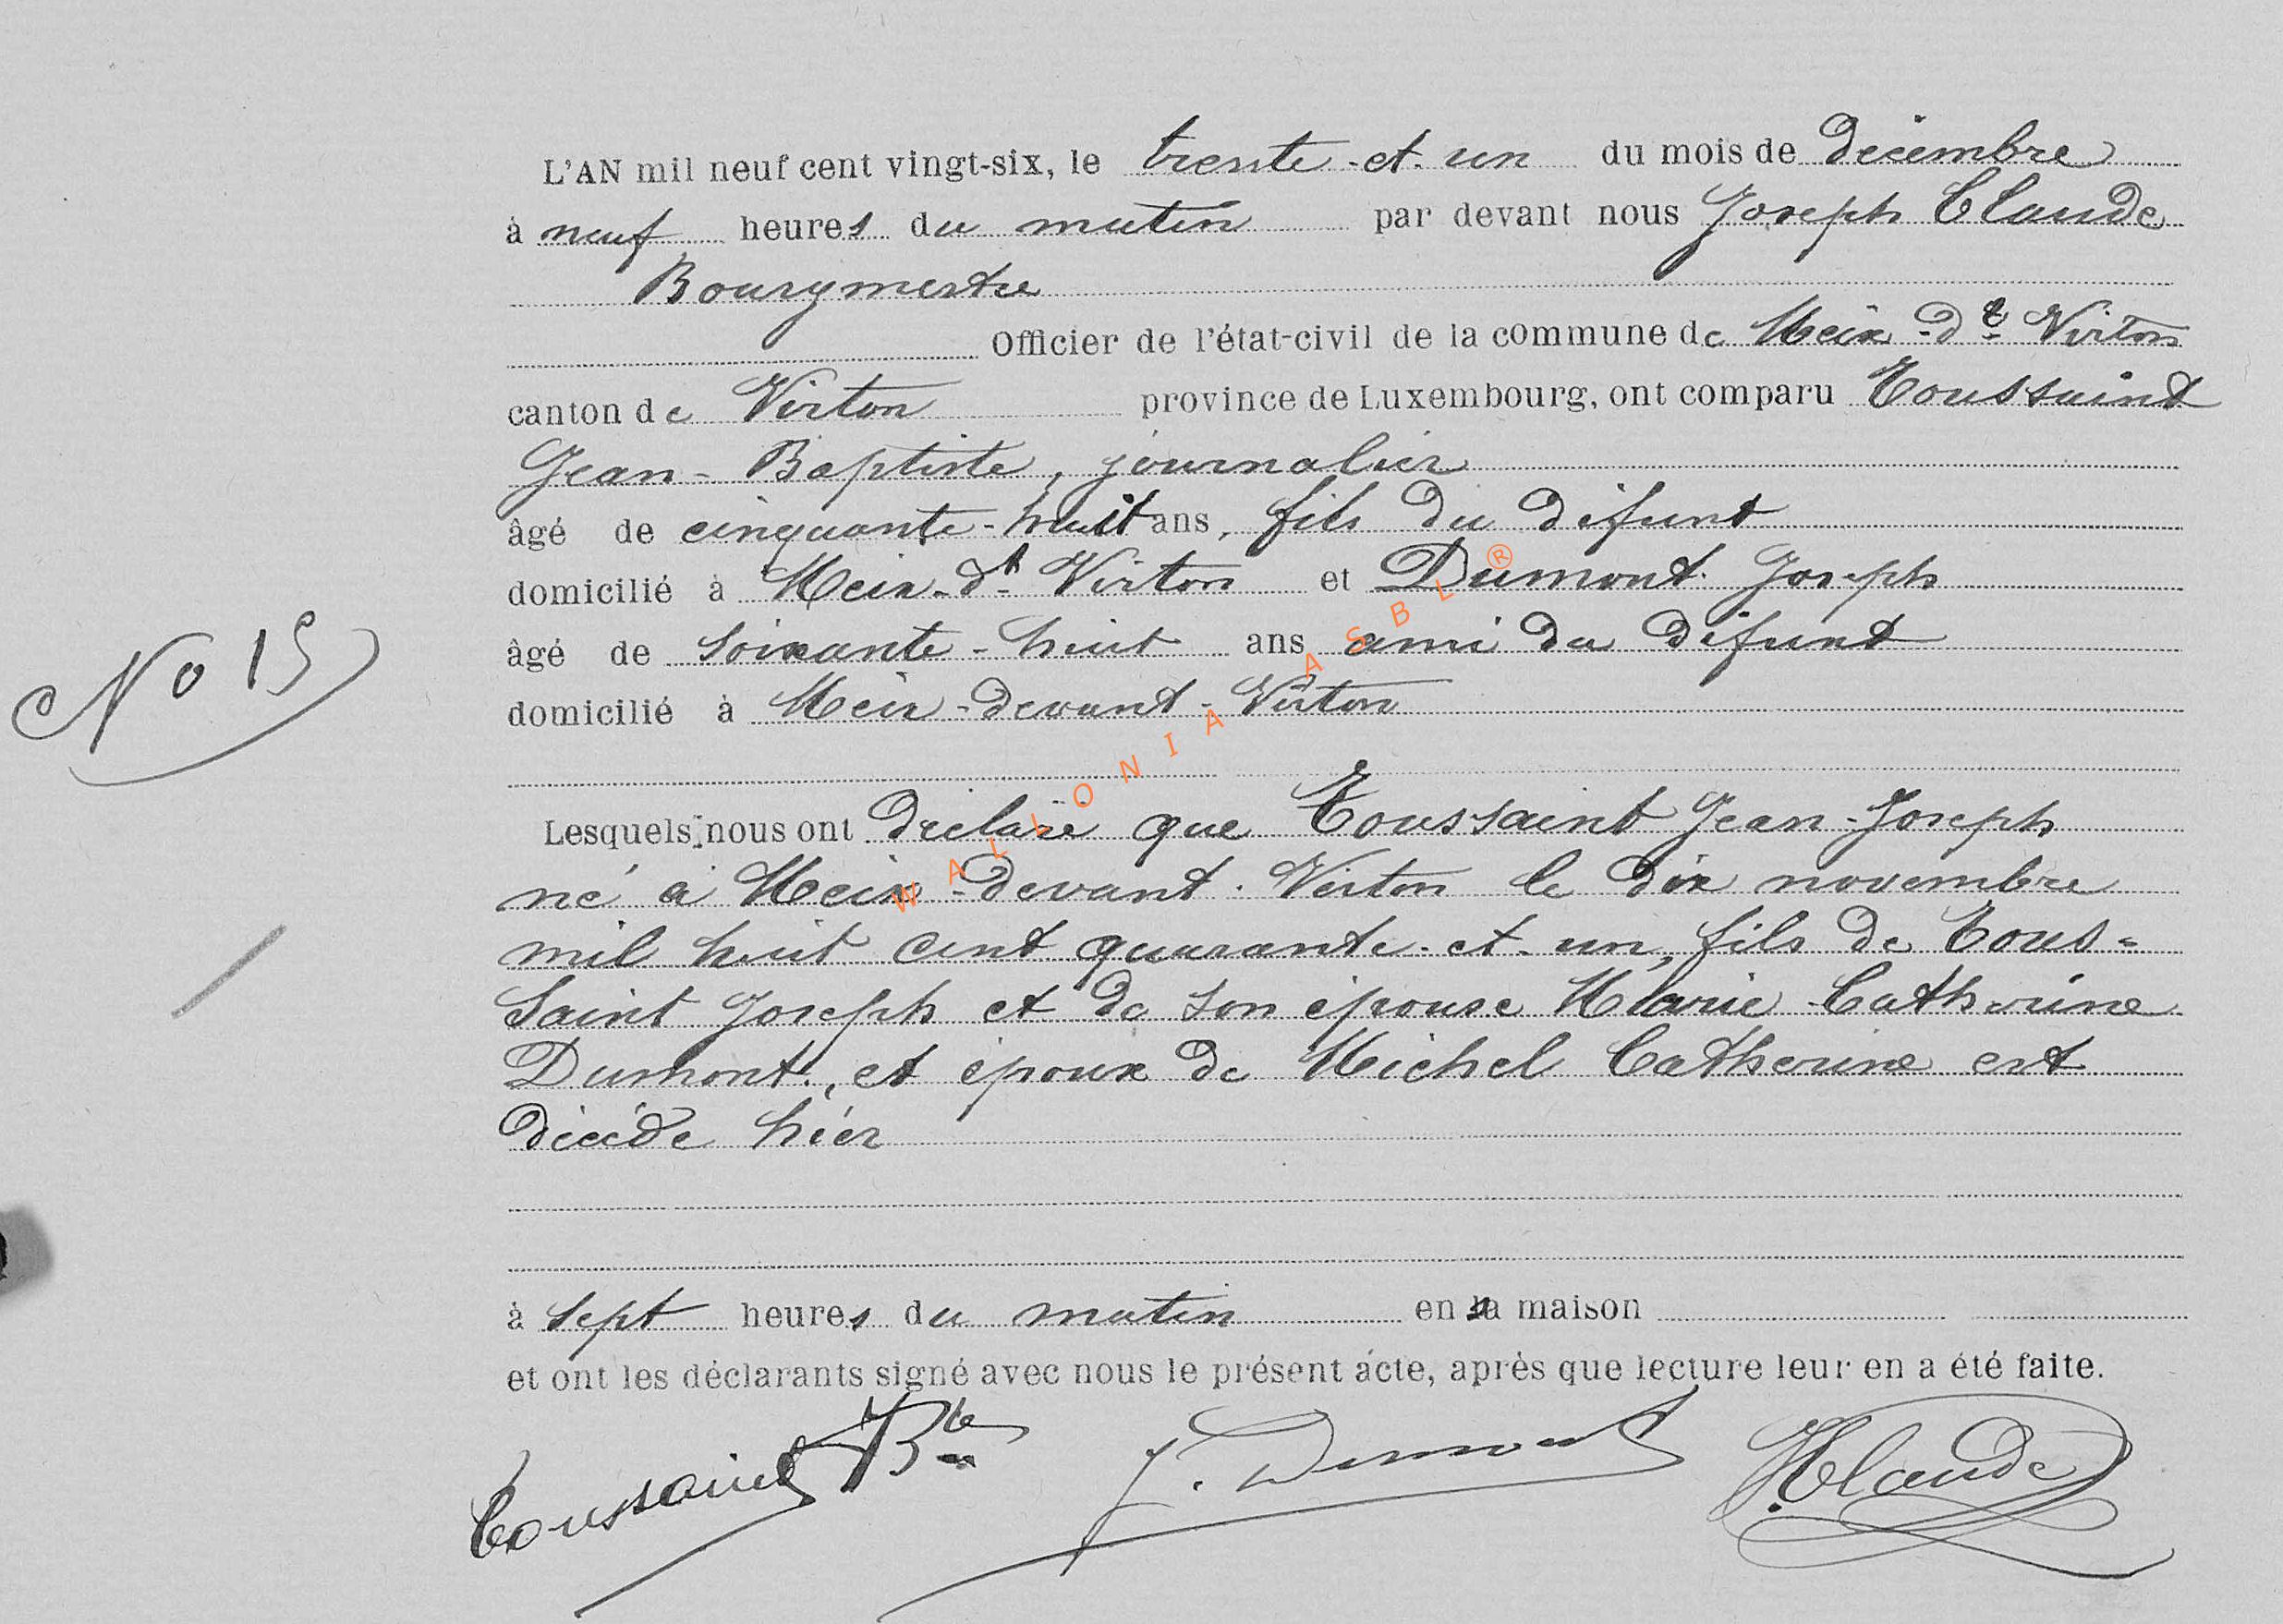 L'AN mil neuf cent vingt-six, le trente-et-un du mois de Décembre
à neuf heures du matin par devant nous Joseph Claude
Bourgmestre
Officier de l'état-civil de la commune de Meix-dt Virton
canton de Virton province de Luxembourg, ont comparu Toussaint
Jean-Baptiste, journalier
âgé de cinquante-huit ans, fils du défunt
domicilié à Meix-dt Virton et Dumont Joseph
âgé de soixante-huit ans ami du défunt
domicilié à Meix-devant-Virton
No 15
Lesquels nous ont déclaré que Toussaint Jean-Joseph
né à Meix-devant-Virton le dix novembre
mil huit cent quarante-et-un, fils de Tous=
saint Joseph et de son épouse Marie Catherine
Dumont, et époux de Michel Catherine est
décédé hier
à sept heures du matin en sa maison
et ont les déclarants signé avec nous le présent acte, après que lecture leur en a été faite.
Toussaint JBte J. Dumont J. Claude
WALLONIA ASBL ®